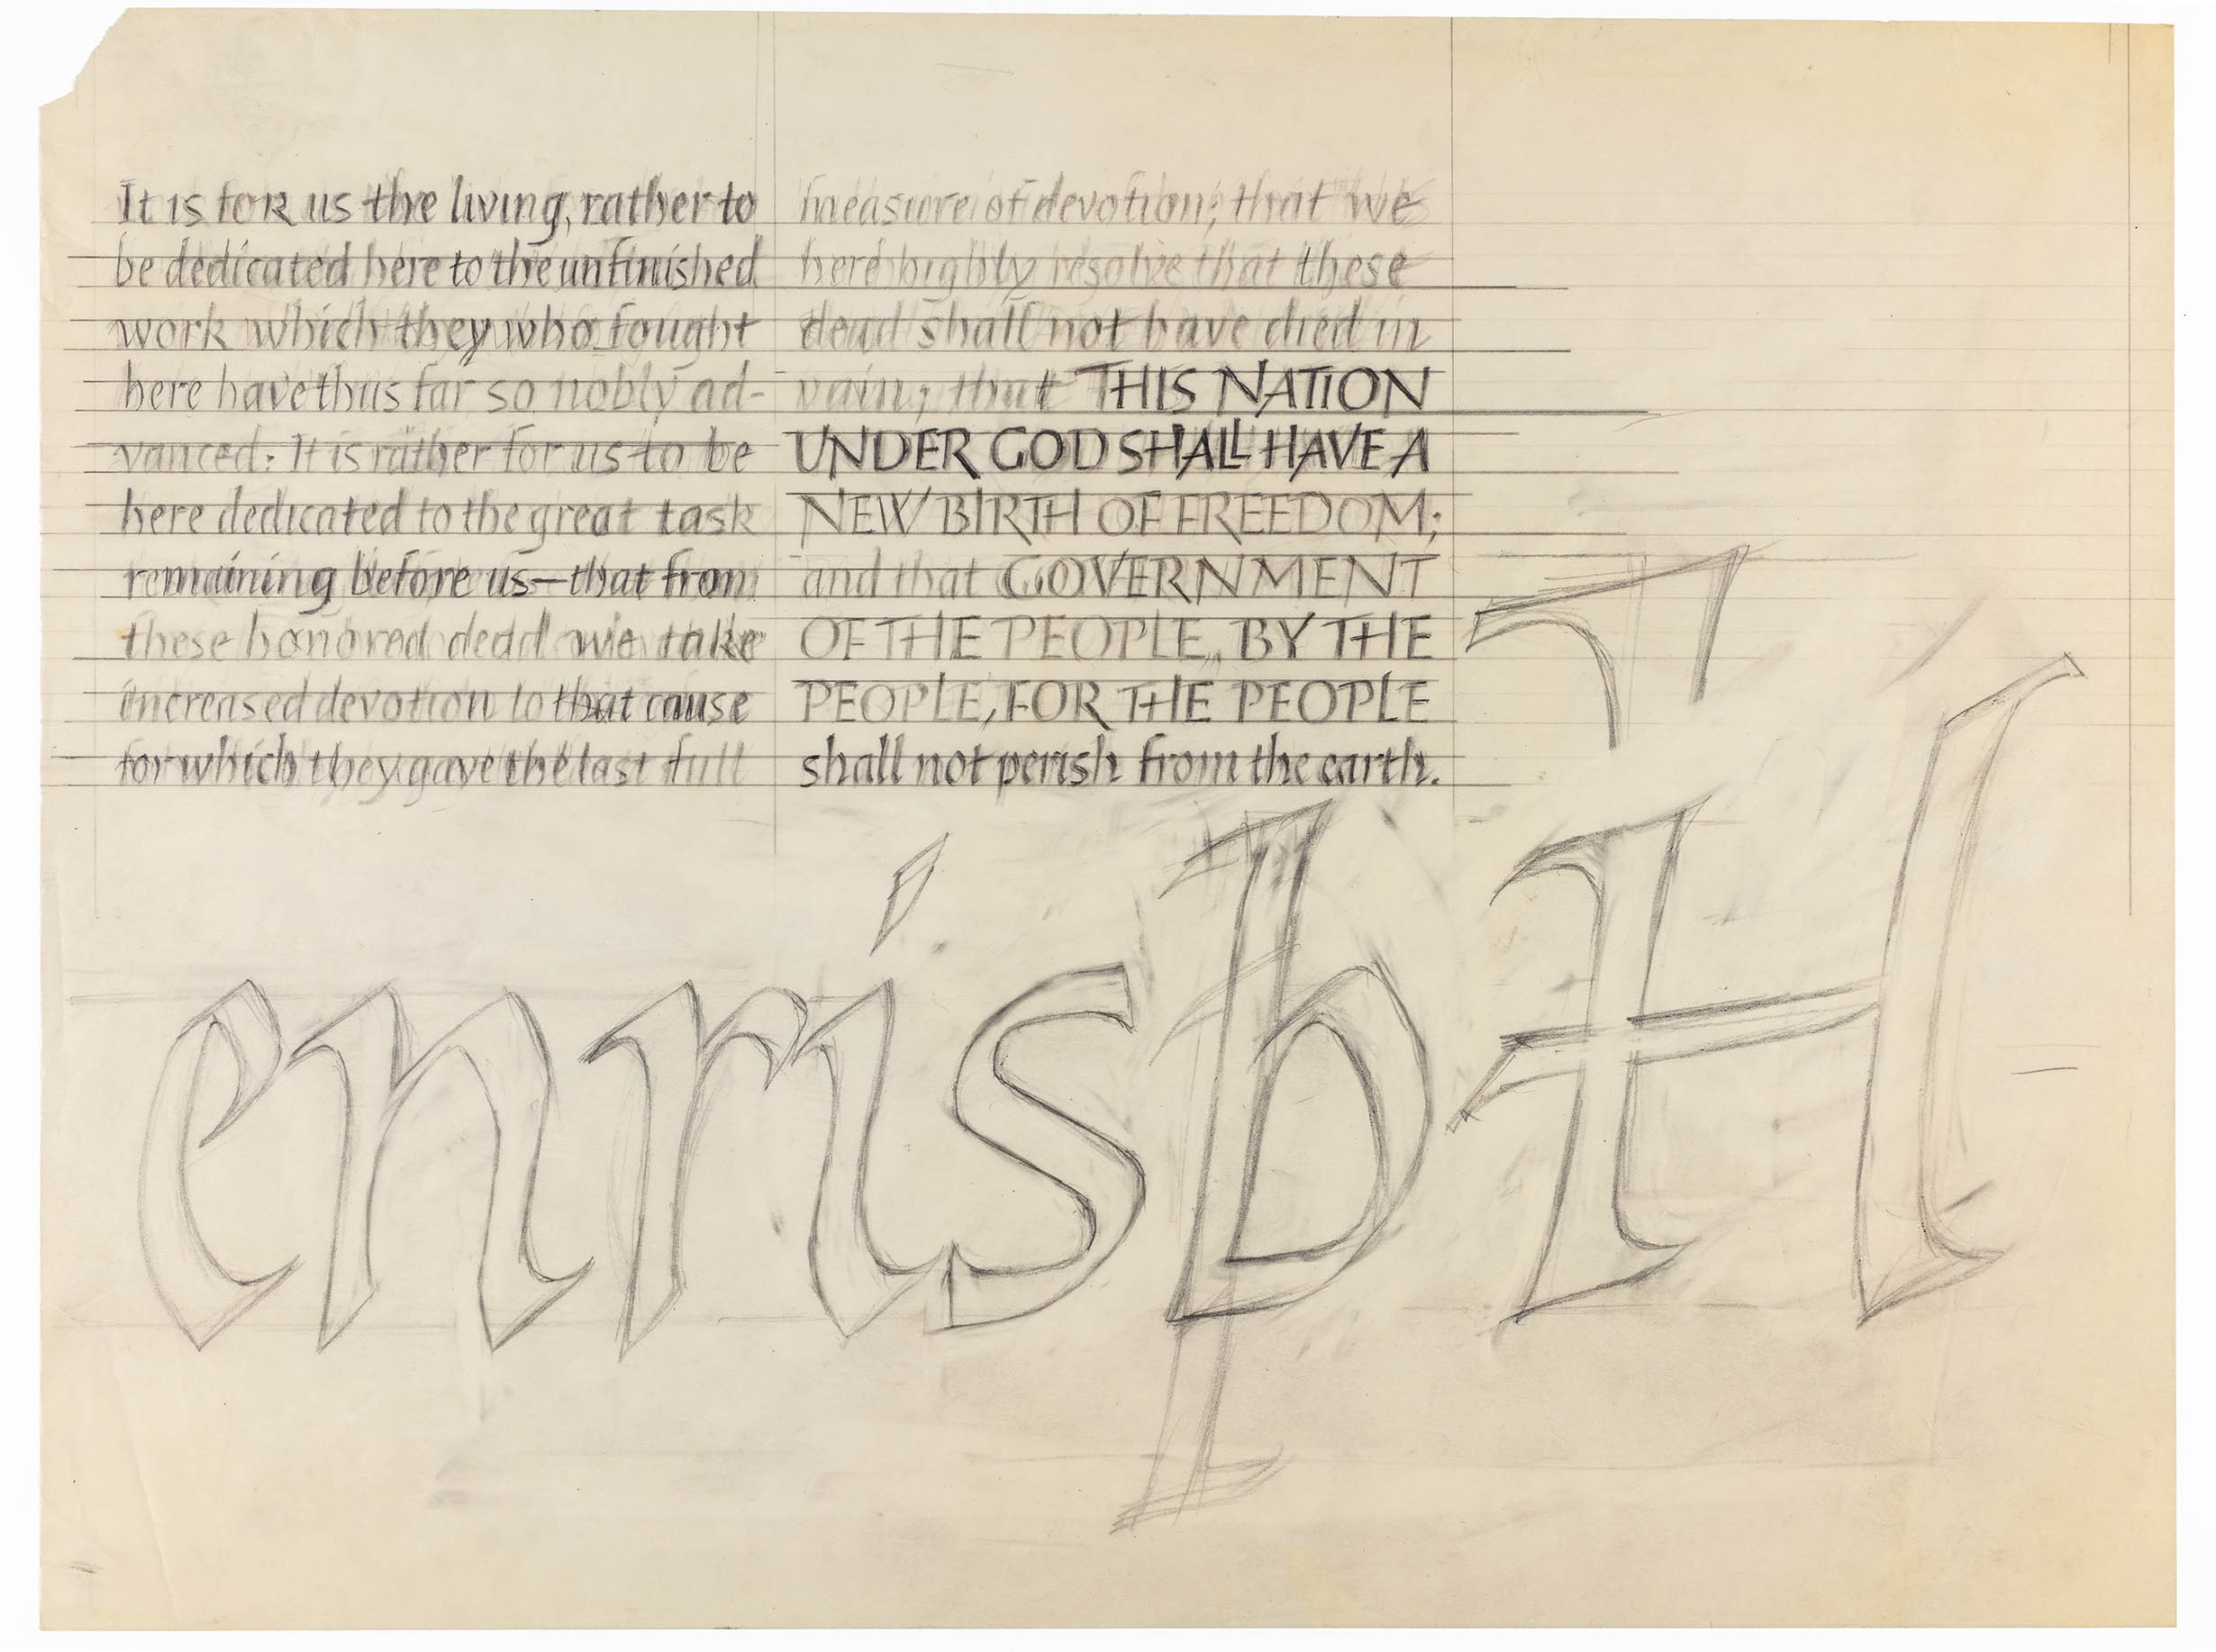 It is for us the living, rather to
be dedicated here to the unfinished
work which they who fought
here have thus far so nobly ad-
vanced. It is rather for us to be
here dedicated to the great task
remaining before us—that from
these honored dead we take
increased devotion to that cause
for which they gave the last full
measure of devotion; that we
here highly resolve that these
dead shall not have died in
vain; that THIS NATION
UNDER GOD SHALL HAVE A
NEW BIRTH OF FREEDOM;
and that GOVERNMENT
OF THE PEOPLE, BY THE
PEOPLE, FOR THE PEOPLE
shall not perish from the earth.
enrisbH